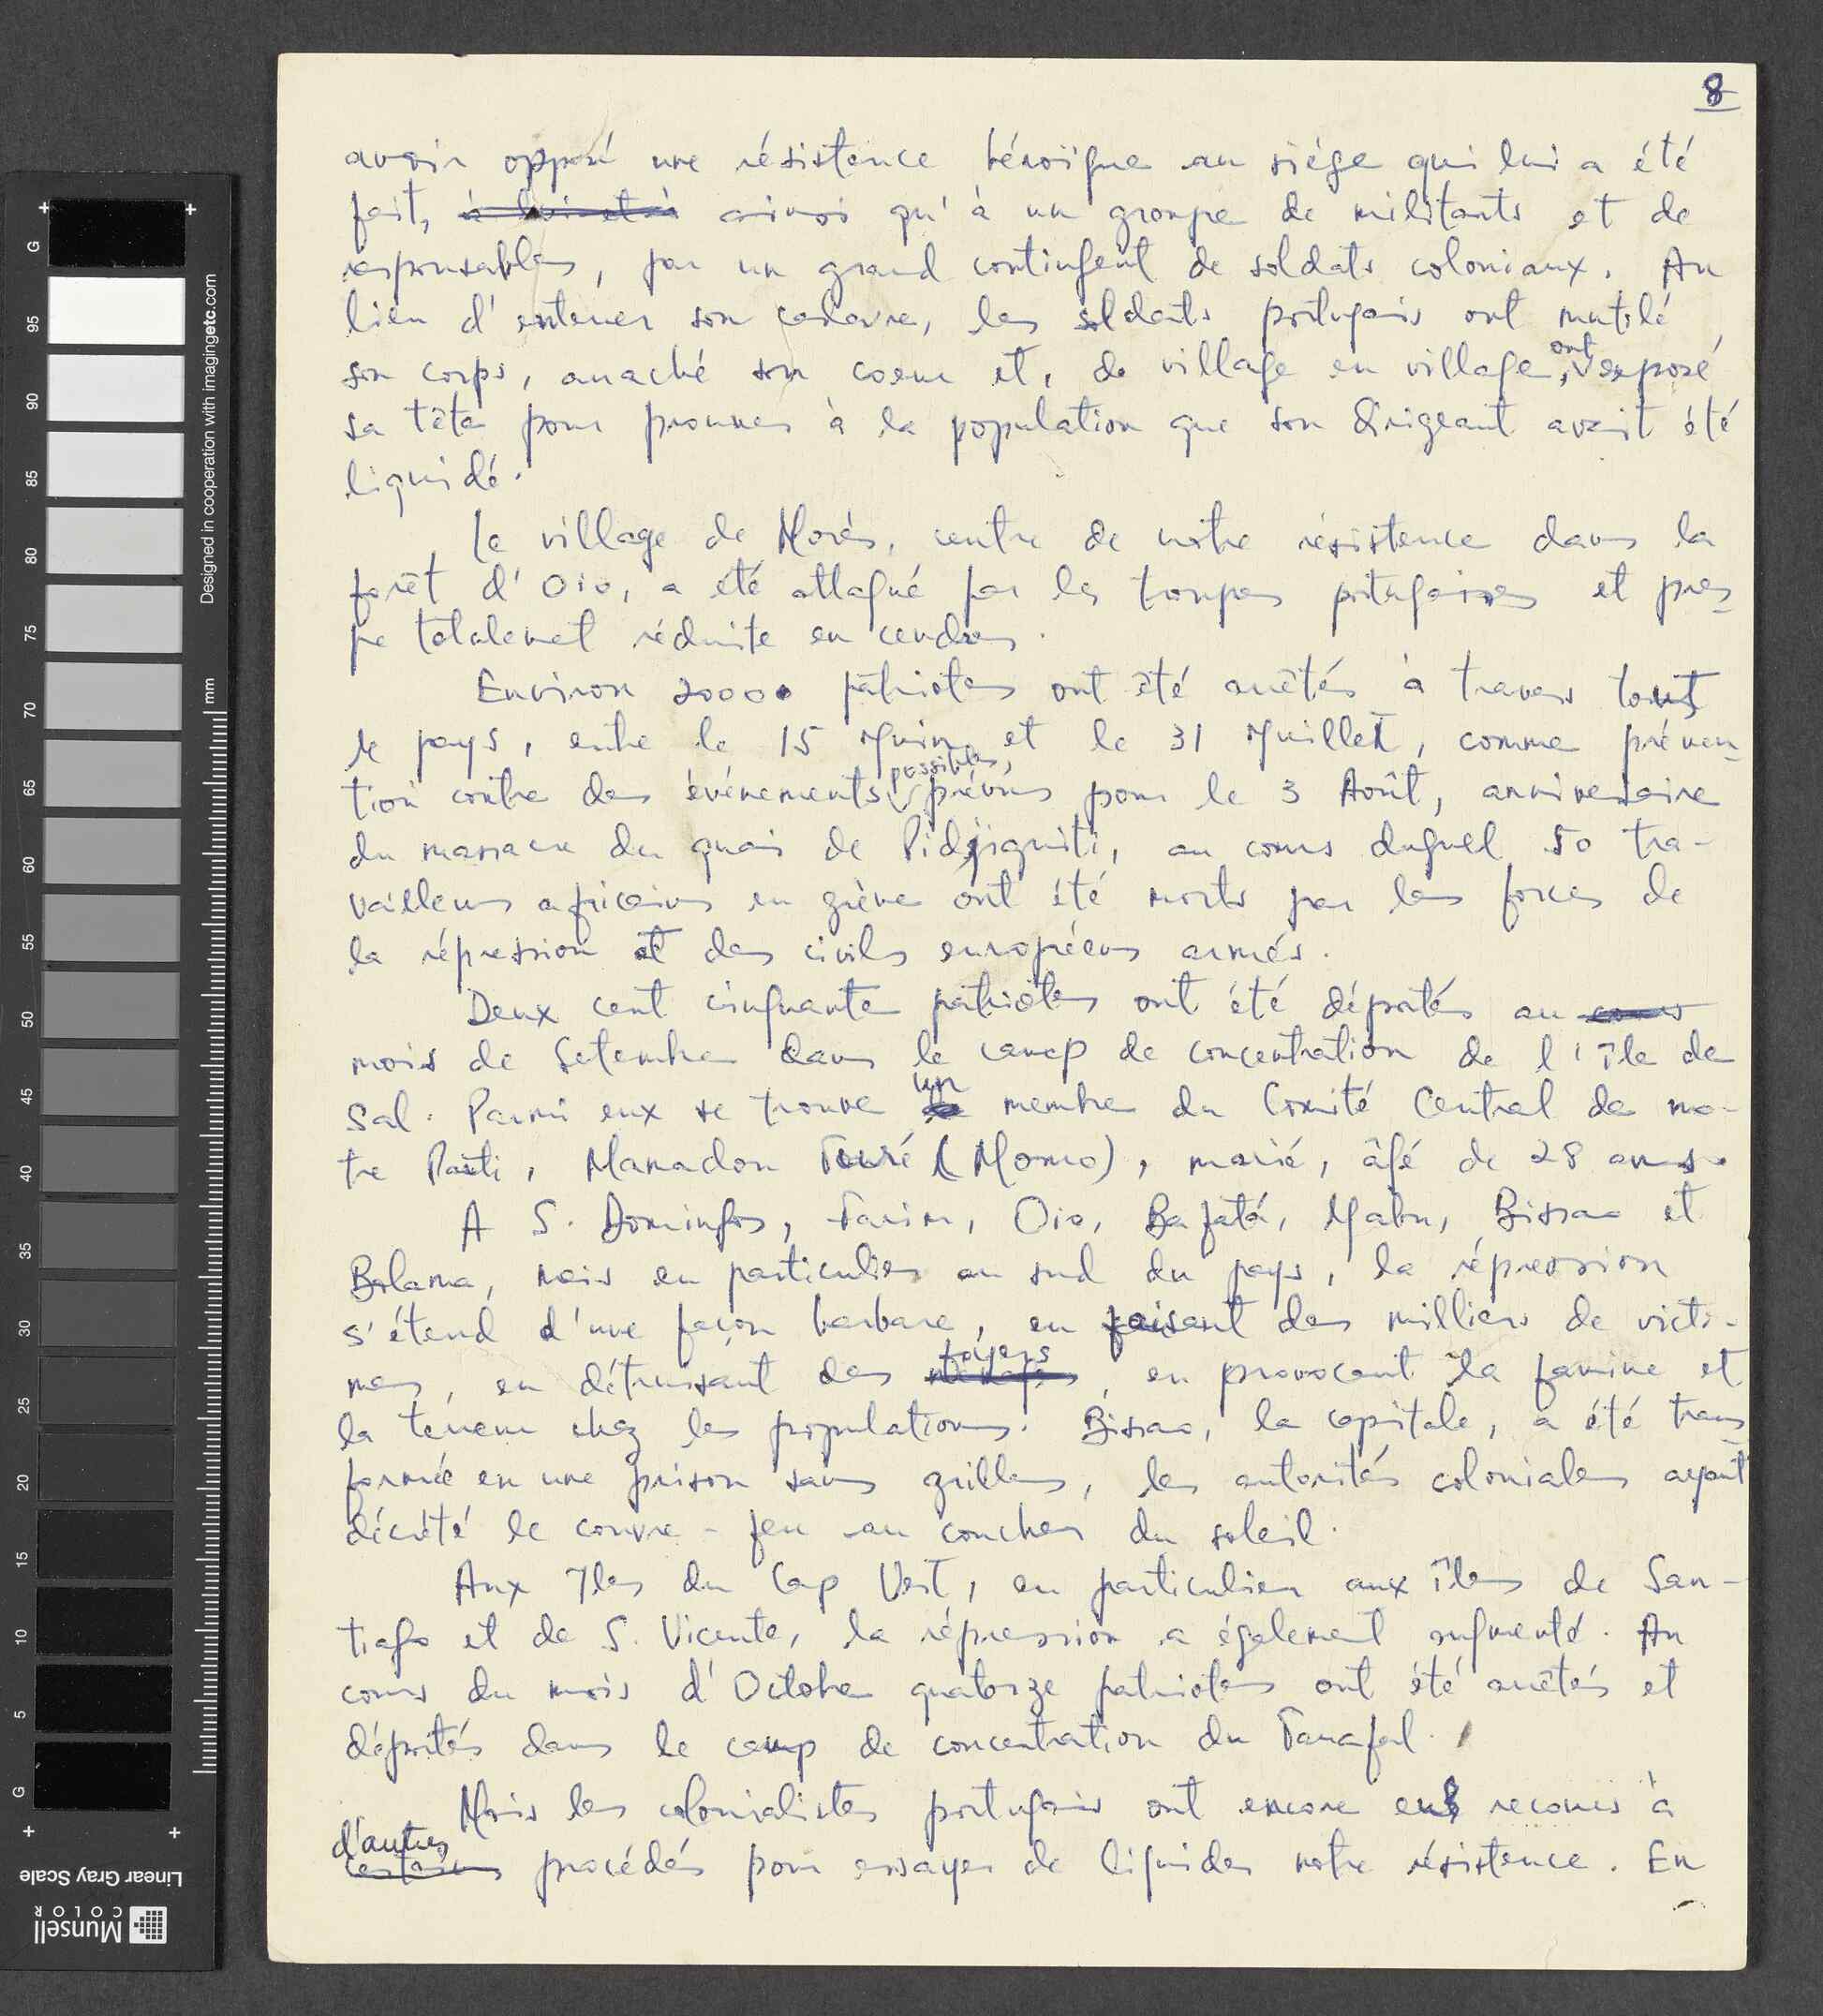 8
avoir opposé une résistence héroïque au siége qui lui a été
fait, à lui et à ainsi qu'à un groupe de militants et de
responsables, par un grand contingent de soldats coloniaux. Au
lieu d'enterrer son cadavre, les soldats portugais ont mutilé
son corps, arraché son coeur et, de village en village, ont exposé
sa tête pour prouver à la population que son dirigeant avait été
liquidé.
Le village de Morés, centre de notre résistence dans la
forêt d'Oio, a été attaqué par les troupes portugaises et pres-
que totalemet réduite en cendres.
Environ 2000 patriotes ont été arrêtés à travers tout
le pays, entre le 15 Juin et le 31 Juillet, comme préven-
tion contre des événements possibles, prévus pour le 3 Août, anniversaire
du massacre du quai de Pidjiguiti, au cours duquel 50 tra-
vailleurs africains en grève ont été morts par les forces de
la répression et des civils européens armés.
Deux cent cinquante patriotes ont été déportés au cours
mois de Setembre dans le camp de concentration de l'île de
Sal. Parmi eux se trouve un membre du Comité Central de no-
tre Parti, Mamadou Touré (Momo), marié, âgé de 28 ans.
A S. Domingos, Farim, Oio, Bafatá, Gabu, Bissao et
Bolama, mais en particulier au sud du pays, la répression
s'étend d'une façon barbare, en faisant des milliers de victi-
mes, en détruisant des ménages foyers, en provocant la famine et
la terreur chez les populations. Bissao, la capitale, a été trans-
formée en une prison sans grilles, les autorités coloniales ayant
décrété le couvre-feu au coucher du soleil.
Aux Iles du Cap Vert, en particulier aux îles de San-
tiago et de S. Vicente, la répression a également augmenté. Au
cours du mois d'Octobre quatorze patriotes ont été arrêtés et
déportés dans le camp de concentration du Tarrafal.
Mais les colonialistes portugais ont encore eu recours à
certains d'autres procédés pour essayer de liquider notre résistence. En
G
95
90
85
80
75
70
65
60
55
50
45
40
35
30
25
20
15
10
5
G
mm
Designed in cooperation with imagingetc.com
Linear Gray Scale
Munsell
COLOR